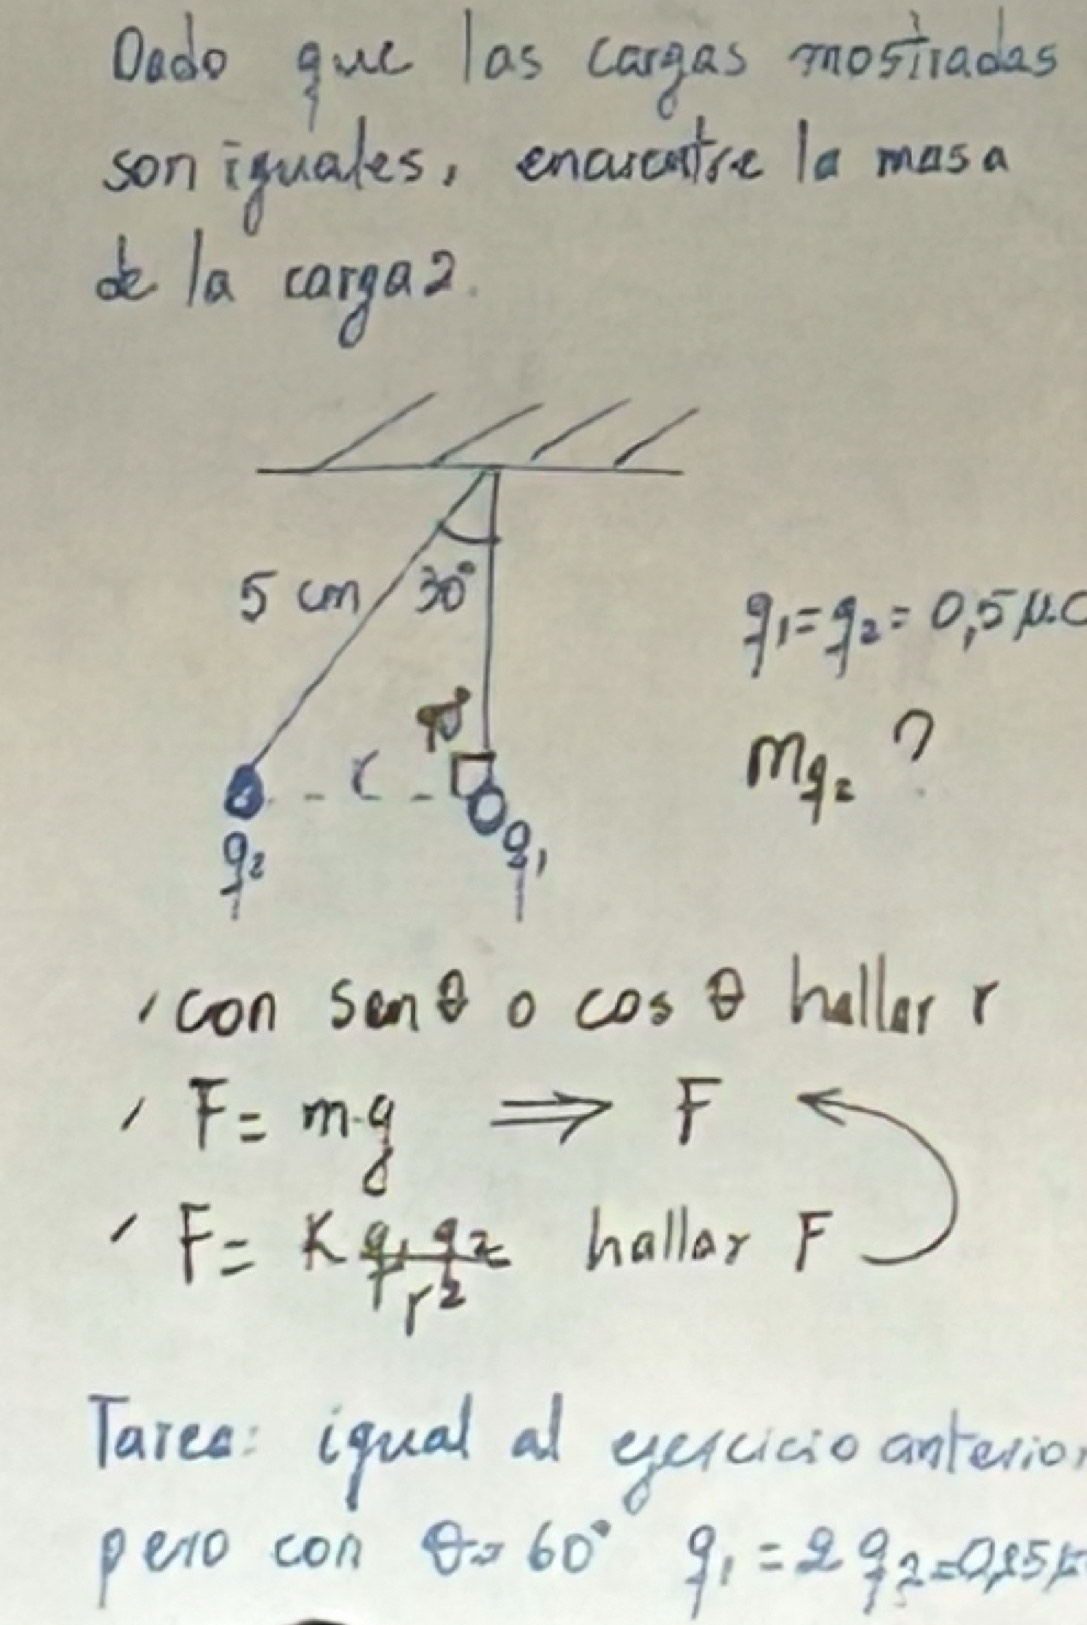 Dado que las cargas mostradas
son iguales, encuentre la masa
de la carga 2.
5 cm 30°
q₁ = q₂ = 0,5 μC
90°
r
m_q₂ ?
q₂ q₁
con sen θ o cos θ hallar r
F = m·g ⟹ F
F = K q₁ q₂ / r² hallar F
Tarea: igual al ejercicio anterior
pero con θ = 60° q₁ = 2 q₂ =